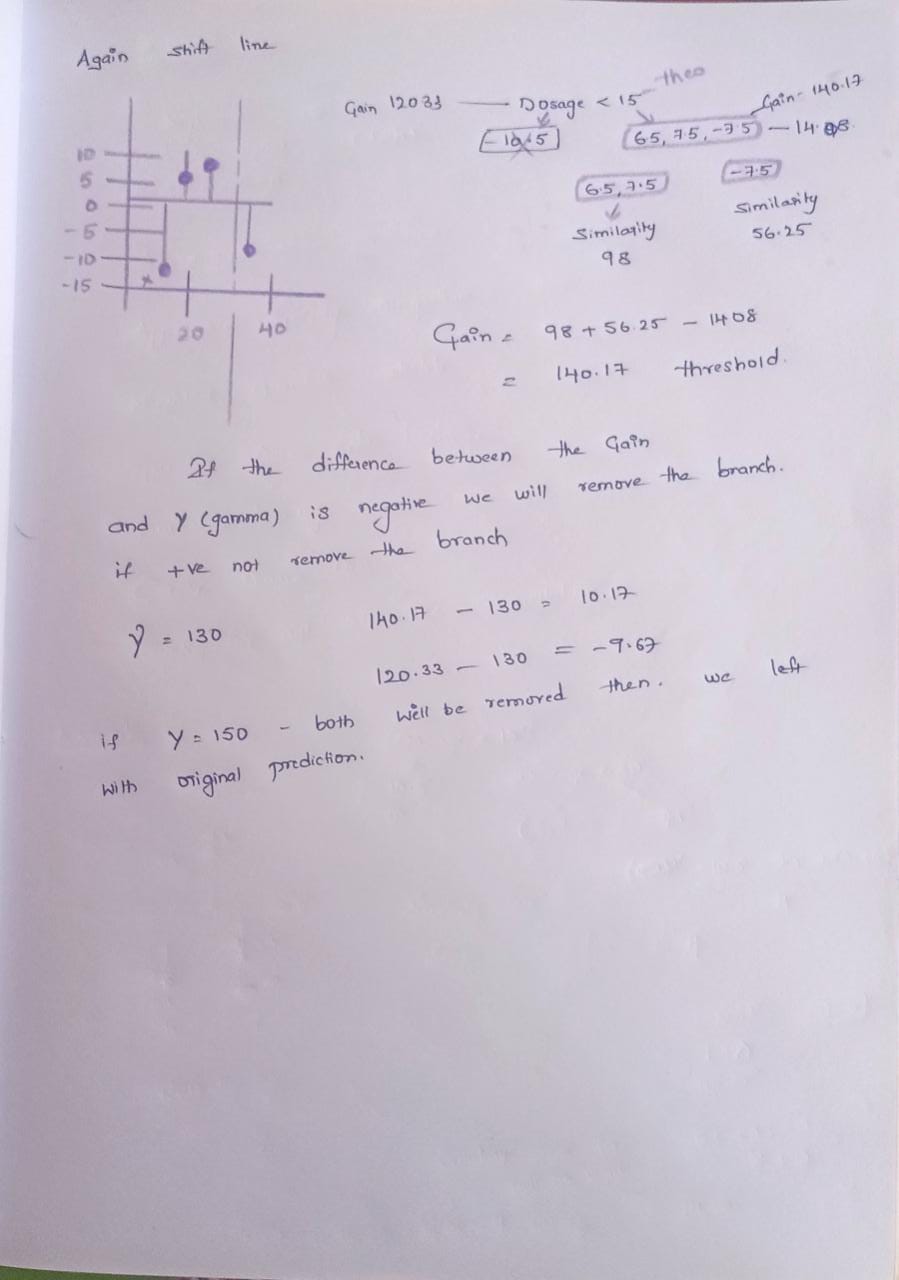 Again shift line
Gain 12033 — Dosage < 15 theo
Gain - 140.17
-10.5
6.5, 7.5, -7.5 — 14.08
6.5, 7.5
-7.5
Similarity
98
Similarity
56.25
10
5
0
-5
-10
-15
20 40
Gain = 98 + 56.25 - 1408
= 140.17 threshold.
If the difference between the Gain
and γ (gamma) is negative we will remove the branch.
if +ve not remove the branch
γ = 130 140.17 - 130 = 10.17
120.33 - 130 = -9.67
if γ = 150 - both will be removed then. we left
with original prediction.